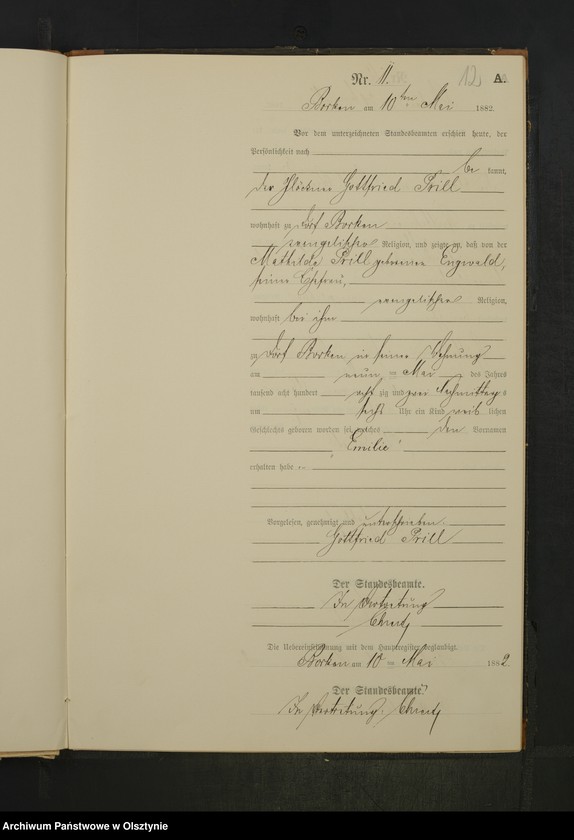 Nr. 11. 12 A.
Borken am 10ten Mai 1882.
Vor dem unterzeichneten Standesbeamten erschien heute, der
Persönlichkeit nach
be kannt,
der Glöckner Gottfried Prill
wohnhaft zu Dorf Borken
evangelischer Religion, und zeigte an, daß von der
Mathilde Prill geborenen Engwald,
seiner Ehefrau,
evangelischer Religion,
wohnhaft bei ihm
zu Dorf Borken in seiner Wohnung
am neun ten Mai des Jahres
tausend acht hundert acht zig und zwei Nachmittags
um sechs Uhr ein Kind weib lichen
Geschlechts geboren worden sei, welches den Vornamen
„Emilie“
erhalten habe
Vorgelesen, genehmigt und unterschrieben
Gottfried Prill
Der Standesbeamte.
In Vertretung
Die Uebereinstimmung mit dem Hauptregister beglaubigt.
Borken am 10 ten Mai 1882
Der Standesbeamte
In Vertretung:
Archiwum Państwowe w Olsztynie